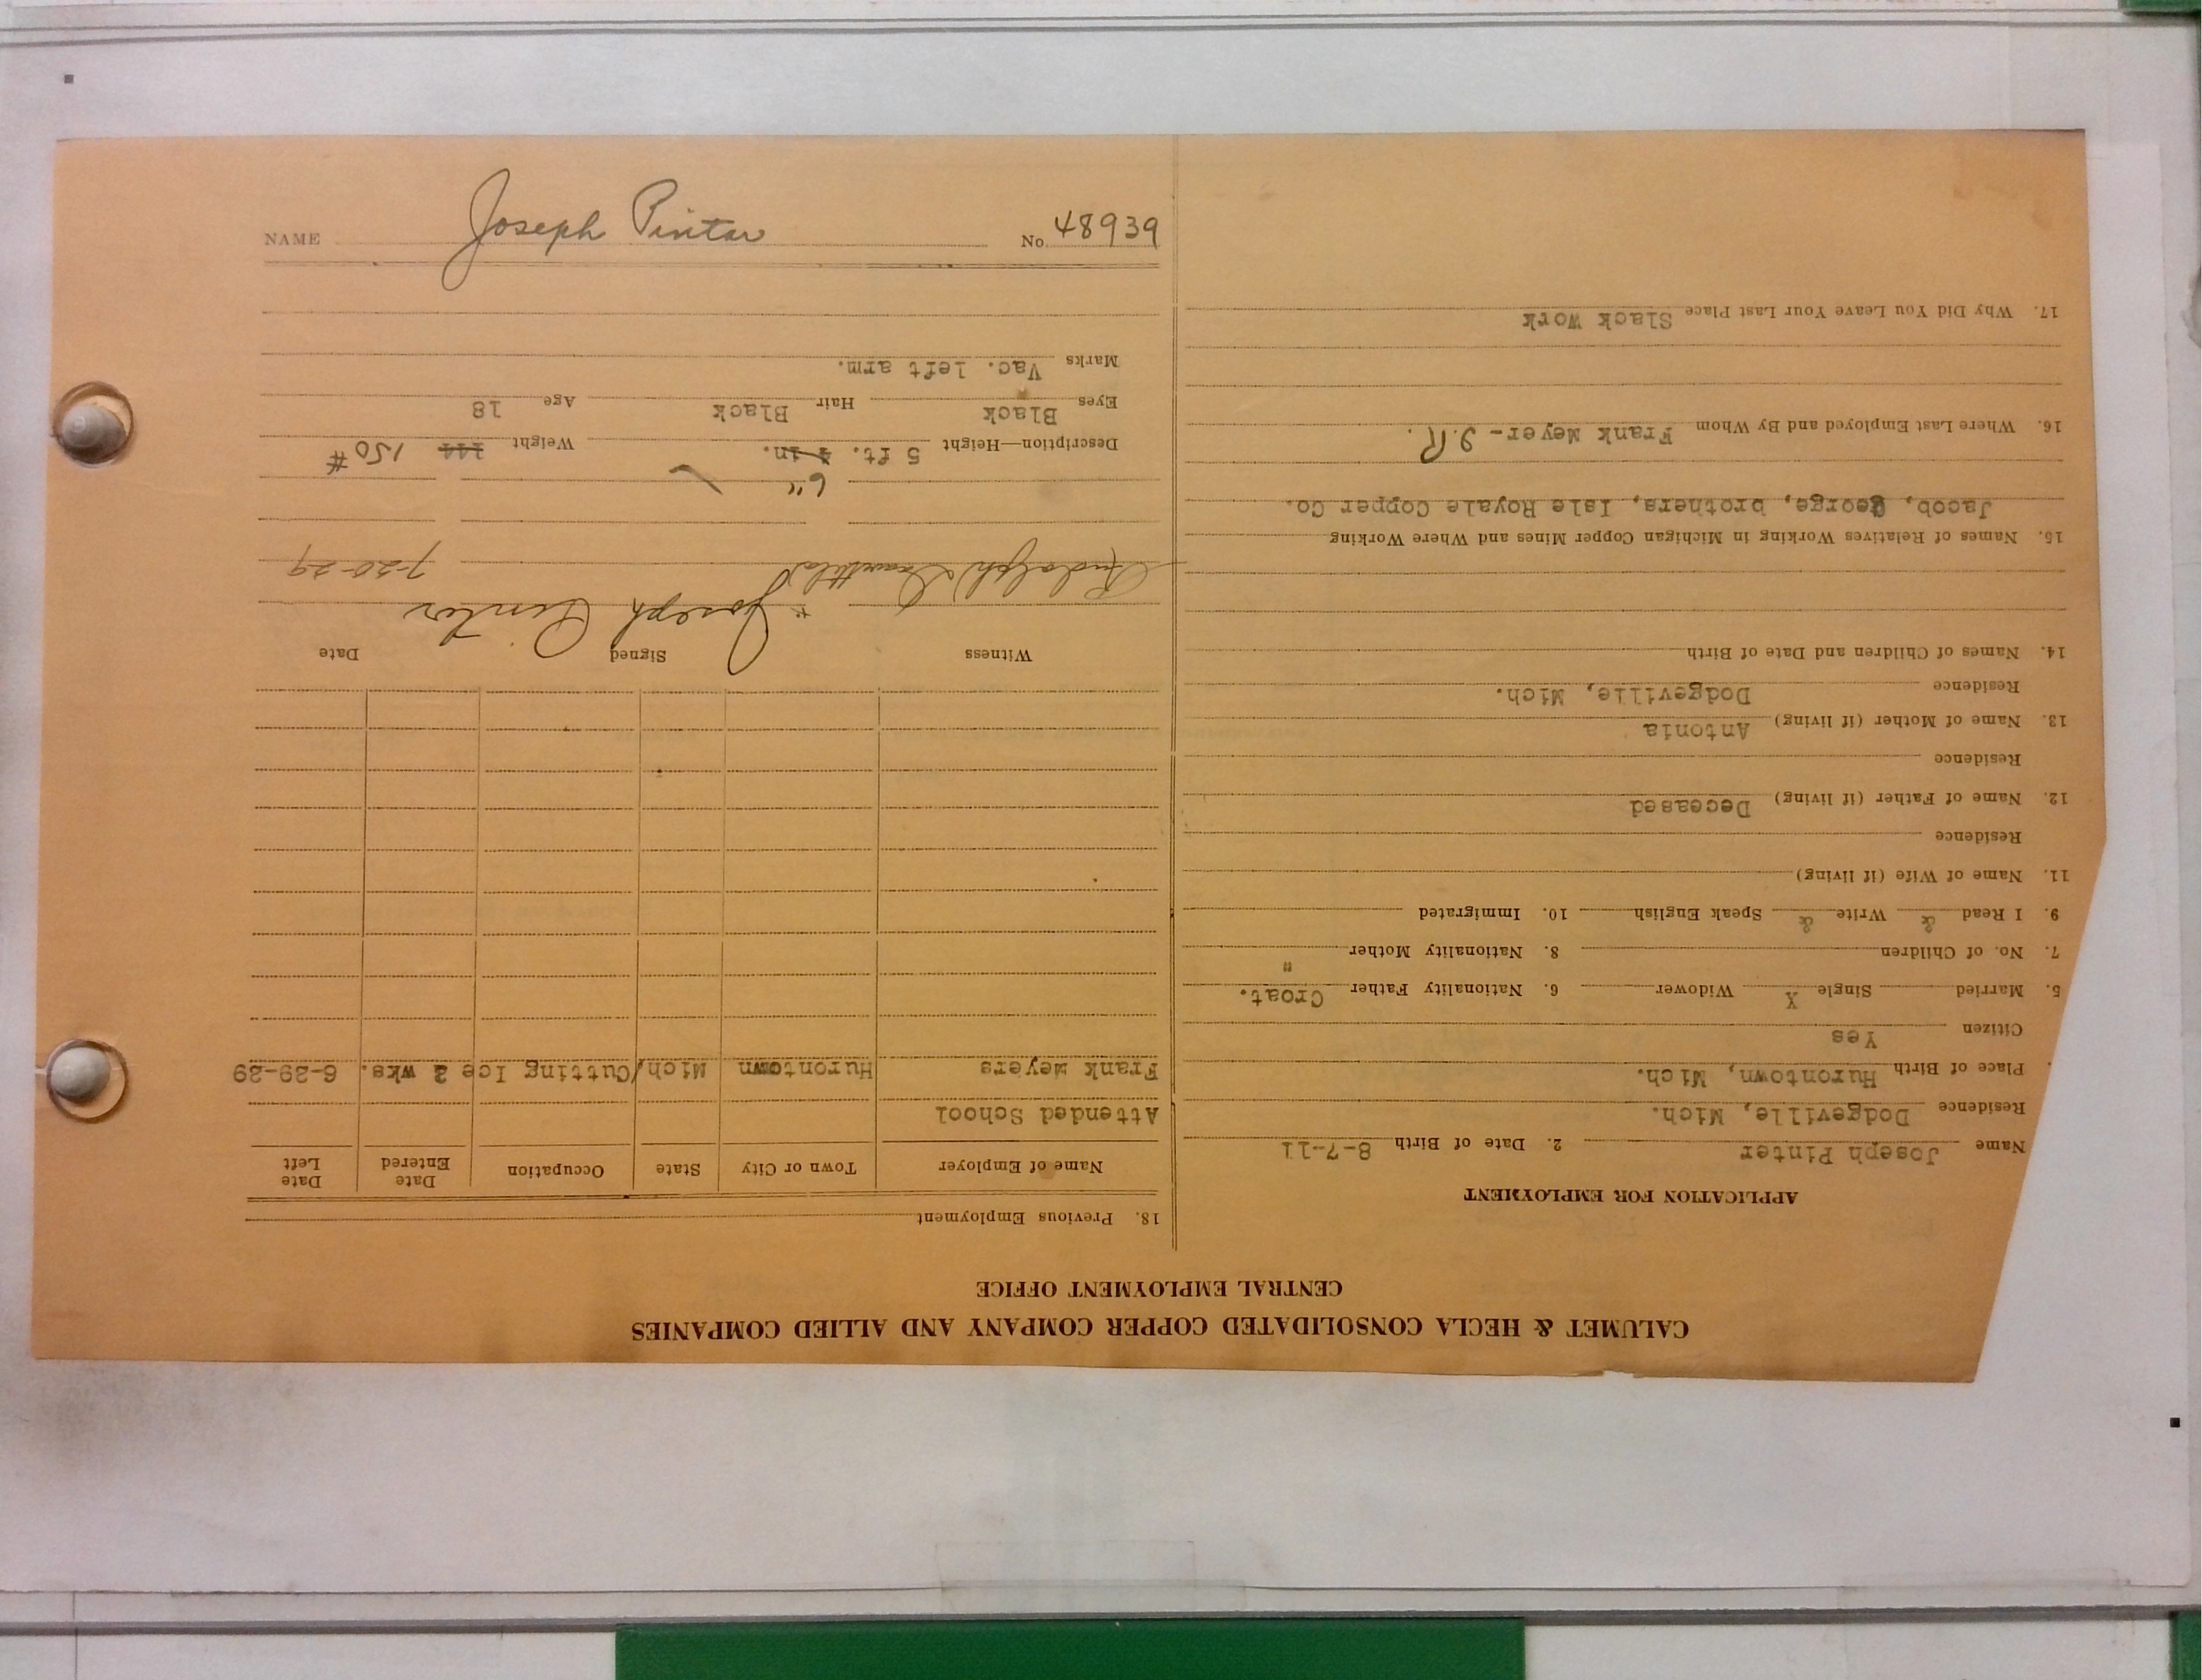 CALUMET & HECLA CONSOLIDATED COPPER COMPANY AND ALLIED COMPANIES
CENTRAL EMPLOYMENT OFFICE
APPLICATION FOR EMPLOYMENT
Name Joseph Pinter 2. Date of Birth 8-7-11
Residence Dodgeville, Mich.
Place of Birth Hurontown, Mich.
Citizen Yes
5. Married Single X Widower 6. Nationality Father Croat.
7. No. of Children 8. Nationality Mother "
9. I Read & Write & Speak English 10. Immigrated
11. Name of Wife (if living)
Residence
12. Name of Father (if living) Deceased
Residence
13. Name of Mother (if living) Antonia
Residence Dodgeville, Mich.
14. Names of Children and Date of Birth
15. Names of Relatives Working in Michigan Copper Mines and Where Working
Jacob, George, brothers, Isle Royale Copper Co.
16. Where Last Employed and By Whom Frank Meyer- I.R.
17. Why Did You Leave Your Last Place Slack Work
18. Previous Employment
Name of Employer Town or City State Occupation Date Entered Date Left
Attended School
Frank Meyers Hurontown Mich/ Cutting Ice 2 wks. 6-29-29
Witness Signed Date
* Joseph Pinter
Rudolph 7-20-29
6"
Description—Height 5 ft. 4 in. Weight 144 150 #
Eyes Black Hair Black Age 18
Marks Vac. left arm.
NAME Joseph Pintar No. 48939